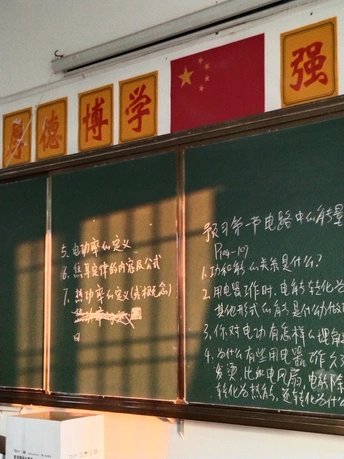 厚德博学
强
5. 电功率的定义
6. 焦耳定律的内容及公式
7. 热功率的定义(
预习第一节电路中的能量
1. 功和能的关系是什么?
2. 用电器工作时,电能转化为
其他形式的能是什么力做
3. 你对电功有怎样的理解
4. 为什么有些用电器工作久
发烫,比如电风扇,电能除
转化为热能,还转化为什么